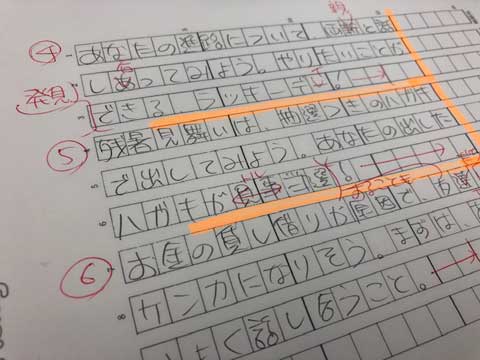 ④ あなたの進路について、両親と話
しあってみよう。やりたいことが
発見
できるラッキーデー！
⑤ 残暑見舞いは、抽選つきのハガキ
で出してみよう。あなたの出した
ハガキが見事当選！
⑥ お金の貸し借りが原因で、友達
ケンカになりそう。まずは、
よく話し合うこと。